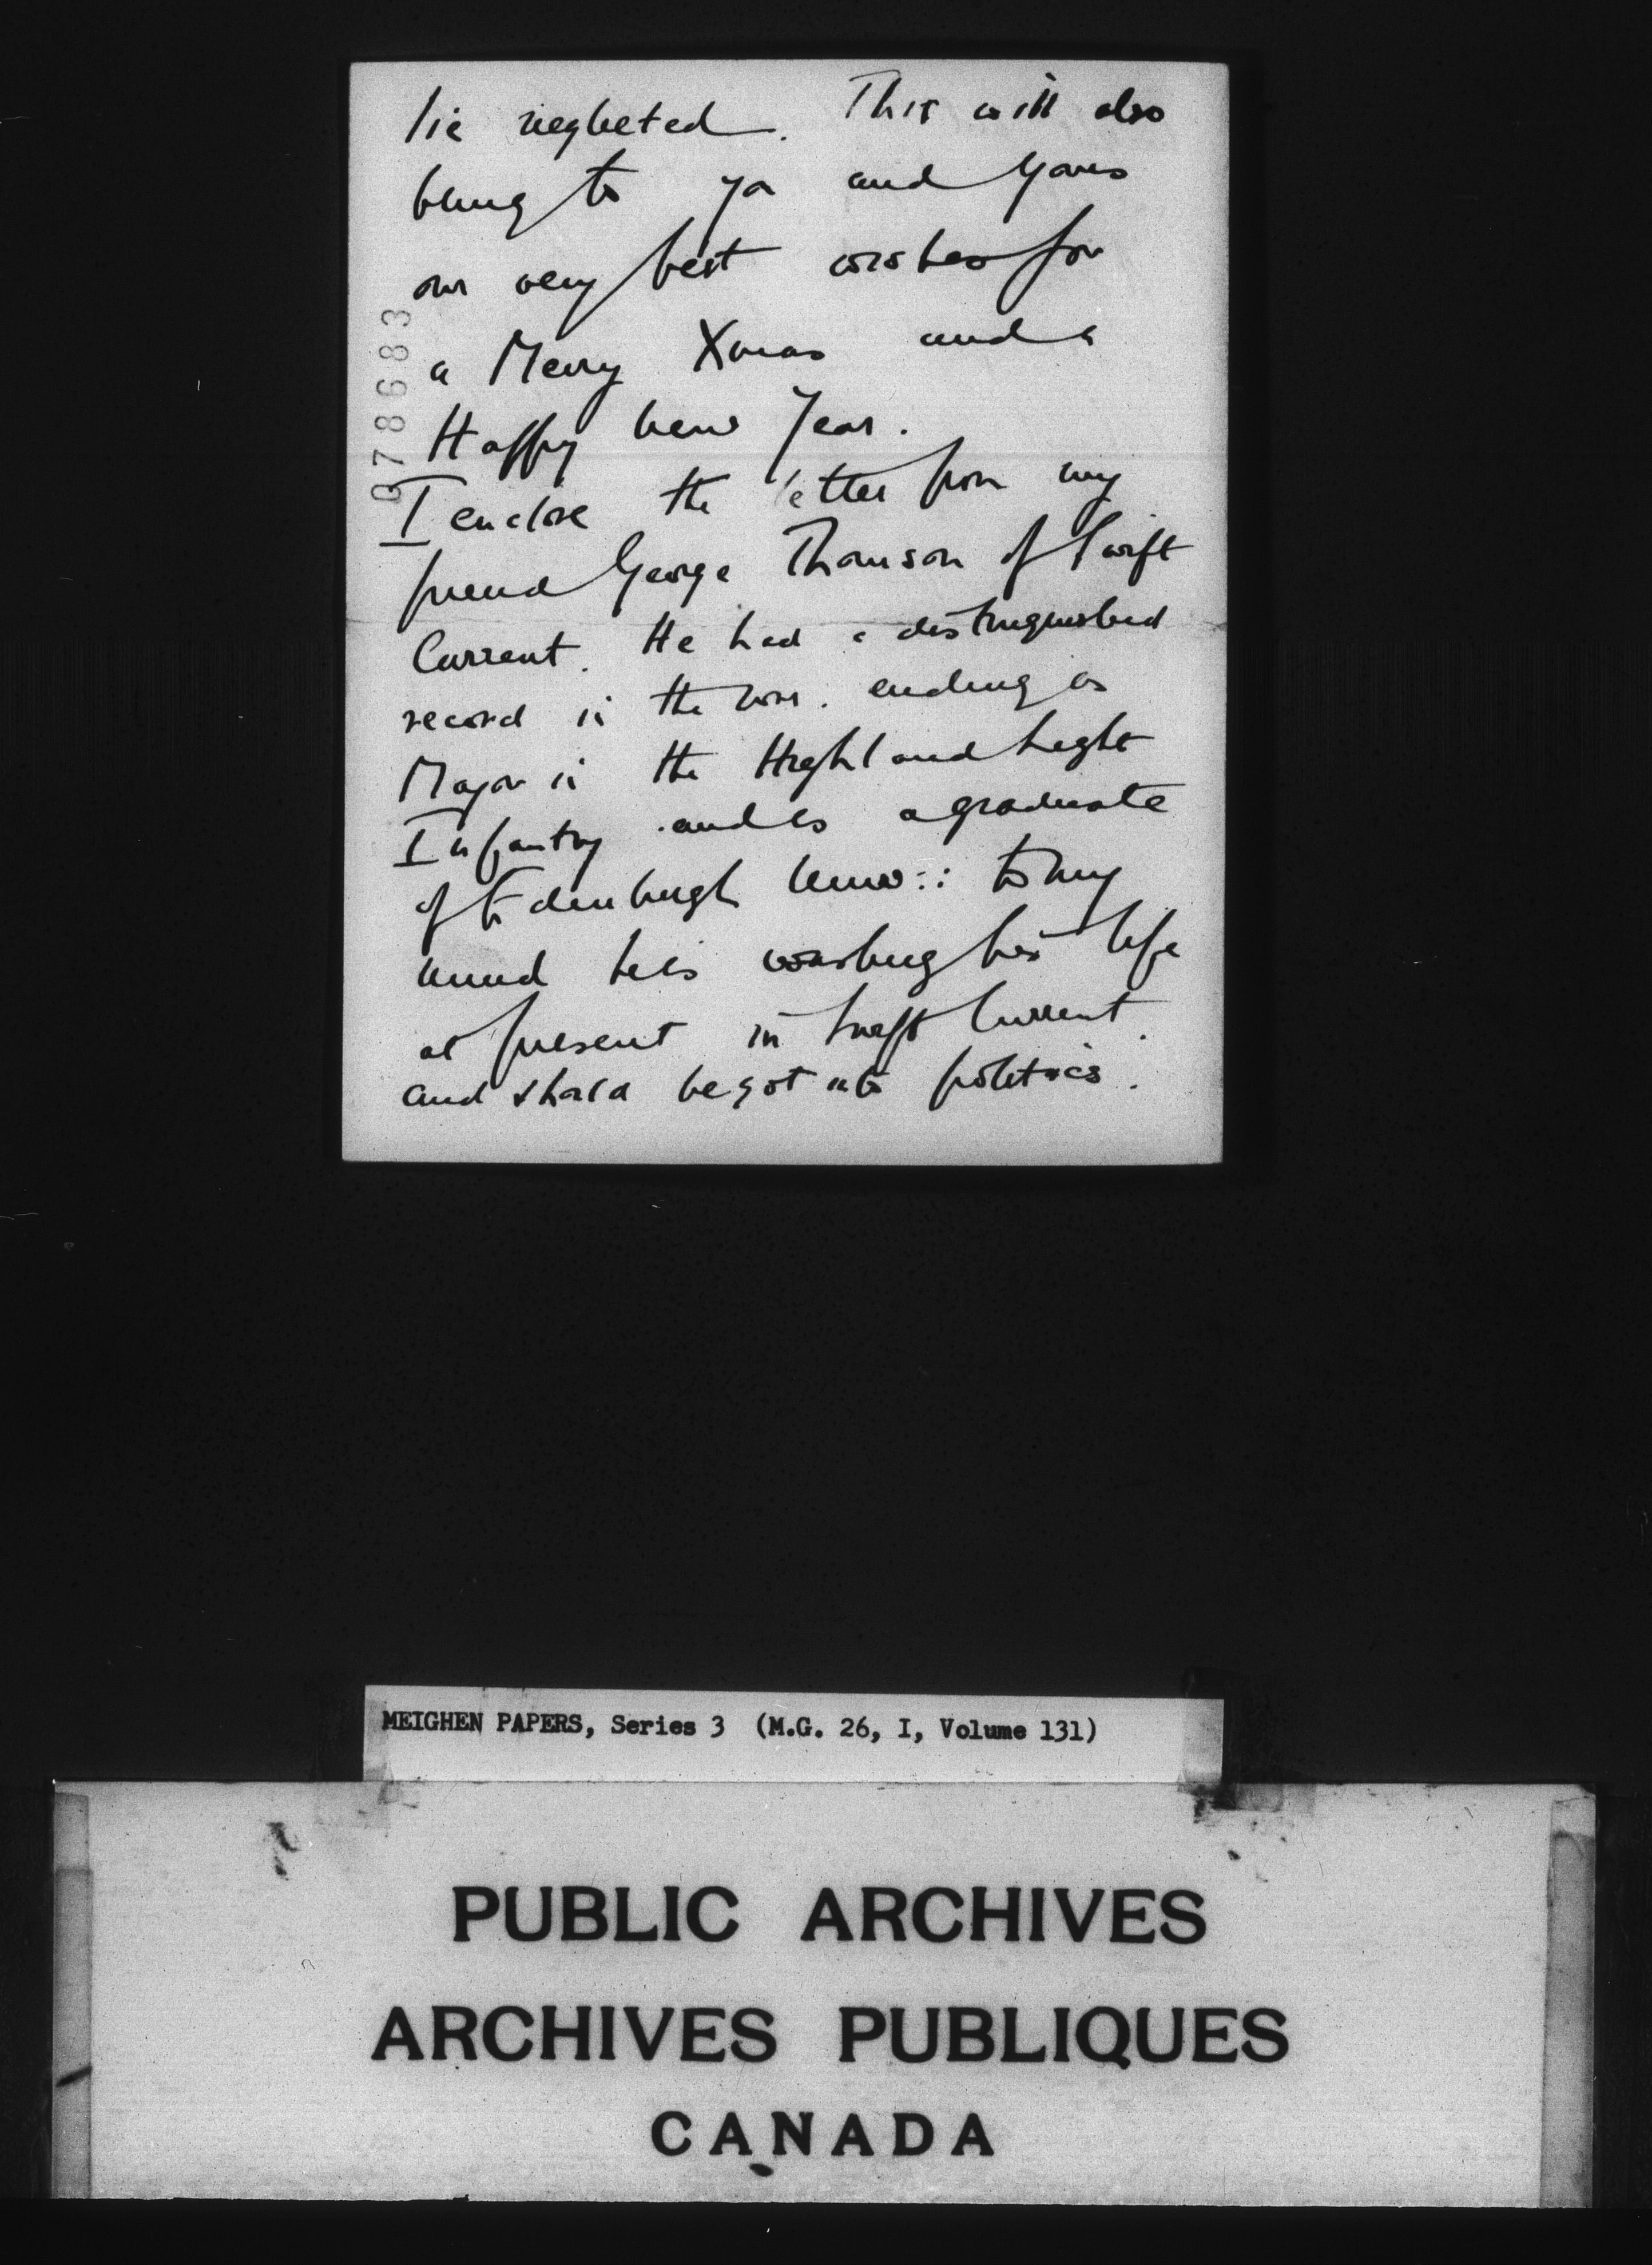 lie neglected. This will also
bring to you and yours
our very best wishes for
a Merry Xmas and a
Happy New Year.
I enclose the letter from my
friend George Thomson of Swift
Current. He had a distinguished
record in the war. ending as
Major in the Highland Light
Infantry and is a graduate
of Edinburgh Univ:: to my
mind he is wasting his life
at present in Swift Current.
and should be got into politics.
078683
MEIGHEN PAPERS, Series 3 (M.G. 26, I, Volume 131)
PUBLIC ARCHIVES
ARCHIVES PUBLIQUES
CANADA